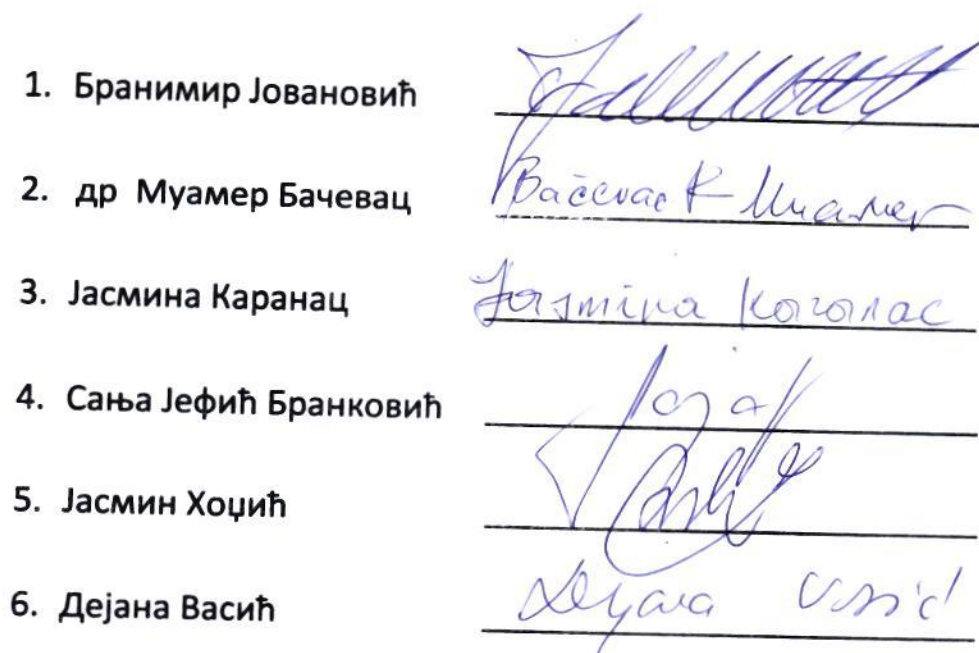 1. Бранимир Јовановић
2. др Муамер Бачевац Bačevac Muamer
3. Јасмина Каранац Jasmina Каранас
4. Сања Јефић Бранковић
5. Јасмин Хоџић
6. Дејана Васић Dejana Vasić